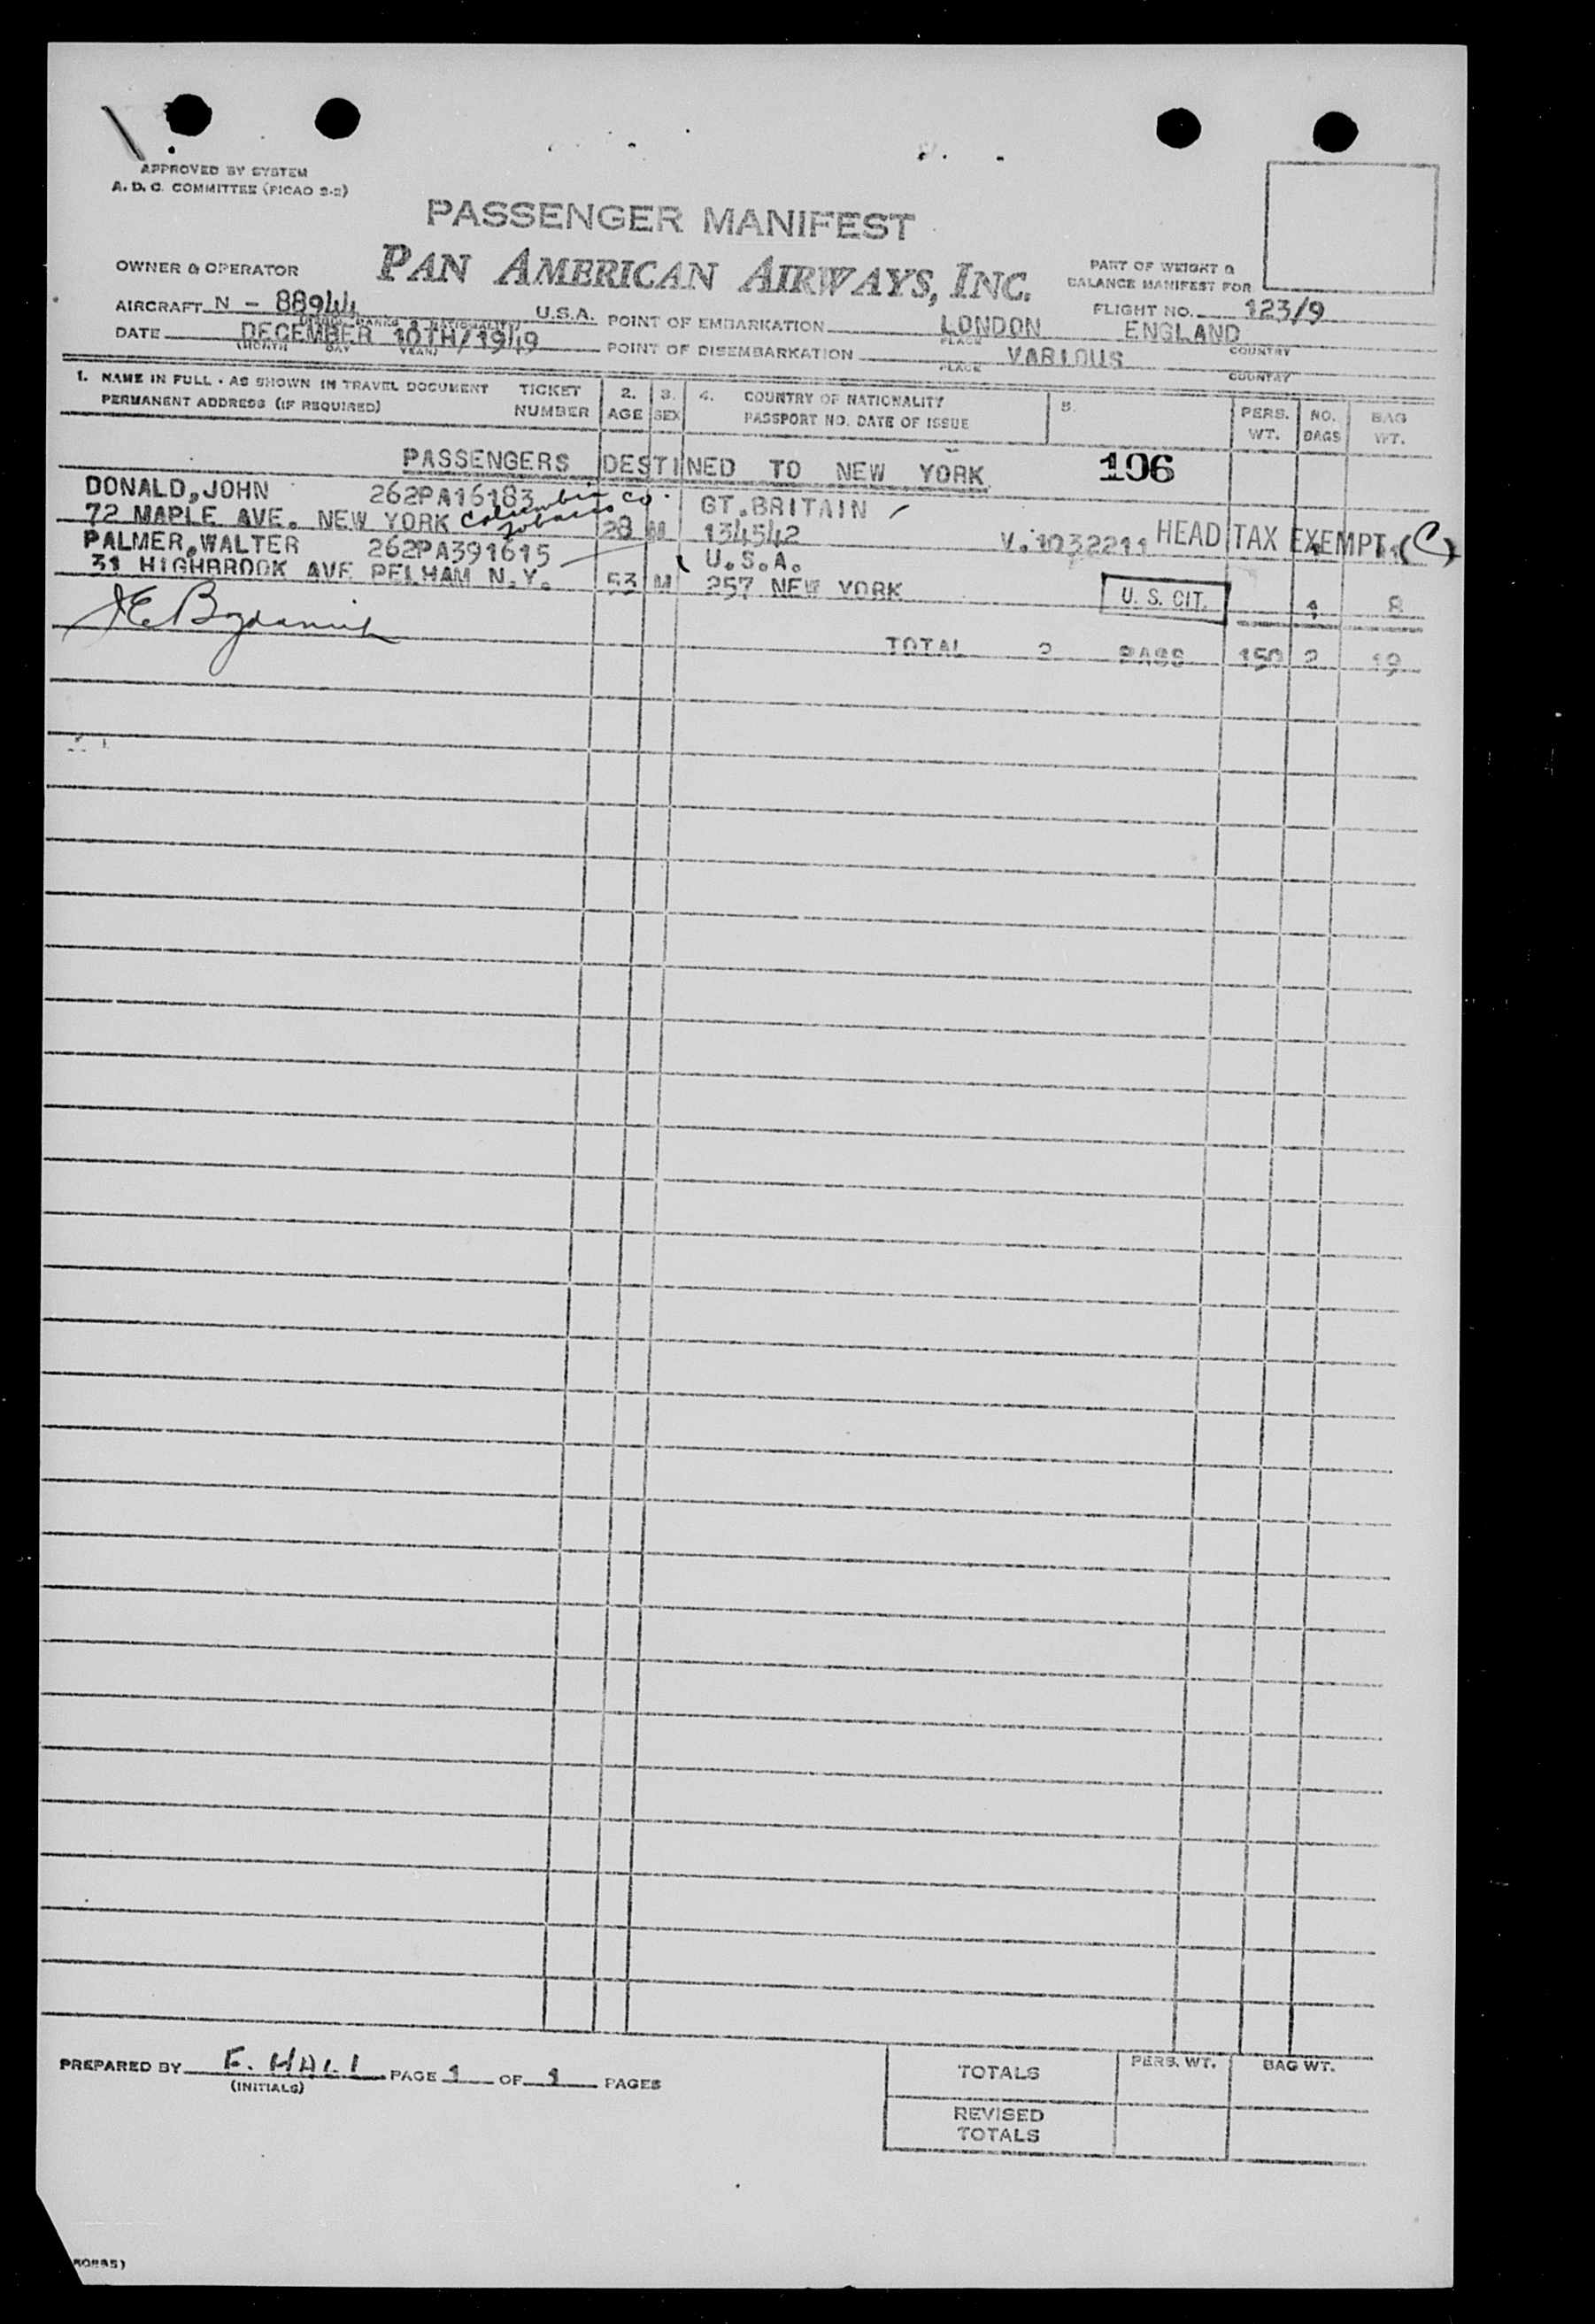 APPROVED BY SYSTEM
A. D. C. COMMITTEE (PICAO 2-2)
PASSENGER MANIFEST
OWNER & OPERATOR
PAN AMERICAN AIRWAYS, INC.
PART OF WEIGHT &
BALANCE MANIFEST FOR
AIRCRAFT N - 88944 U.S.A.
POINT OF EMBARKATION LONDON ENGLAND
FLIGHT NO. 123/9
PLACE COUNTRY
DATE DECEMBER 10TH/1949
(MONTH DAY YEAR)
POINT OF DISEMBARKATION VARIOUS
PLACE COUNTRY
1. NAME IN FULL - AS SHOWN IN TRAVEL DOCUMENT TICKET 2. 3. 4. COUNTRY OF NATIONALITY 5. PERS. NO. BAG
PERMANENT ADDRESS (IF REQUIRED) NUMBER AGE SEX PASSPORT NO. DATE OF ISSUE WT. BAGS WT.
PASSENGERS DESTINED TO NEW YORK 106
DONALD,JOHN 262PA16183 Columbia Co. GT.BRITAIN
72 MAPLE AVE. NEW YORK Tobacco 28 M 134542 V.1032211 HEAD TAX EXEMPT (C)
PALMER,WALTER 262PA391615 U.S.A.
31 HIGHBROOK AVE PELHAM N.Y. 53 M 257 NEW YORK U. S. CIT. 1 8
TOTAL 2 PASS 150 2 19
PREPARED BY F. HALL PAGE 1 OF 1 PAGES
(INITIALS)
TOTALS PERS. WT. BAG WT.
REVISED
TOTALS